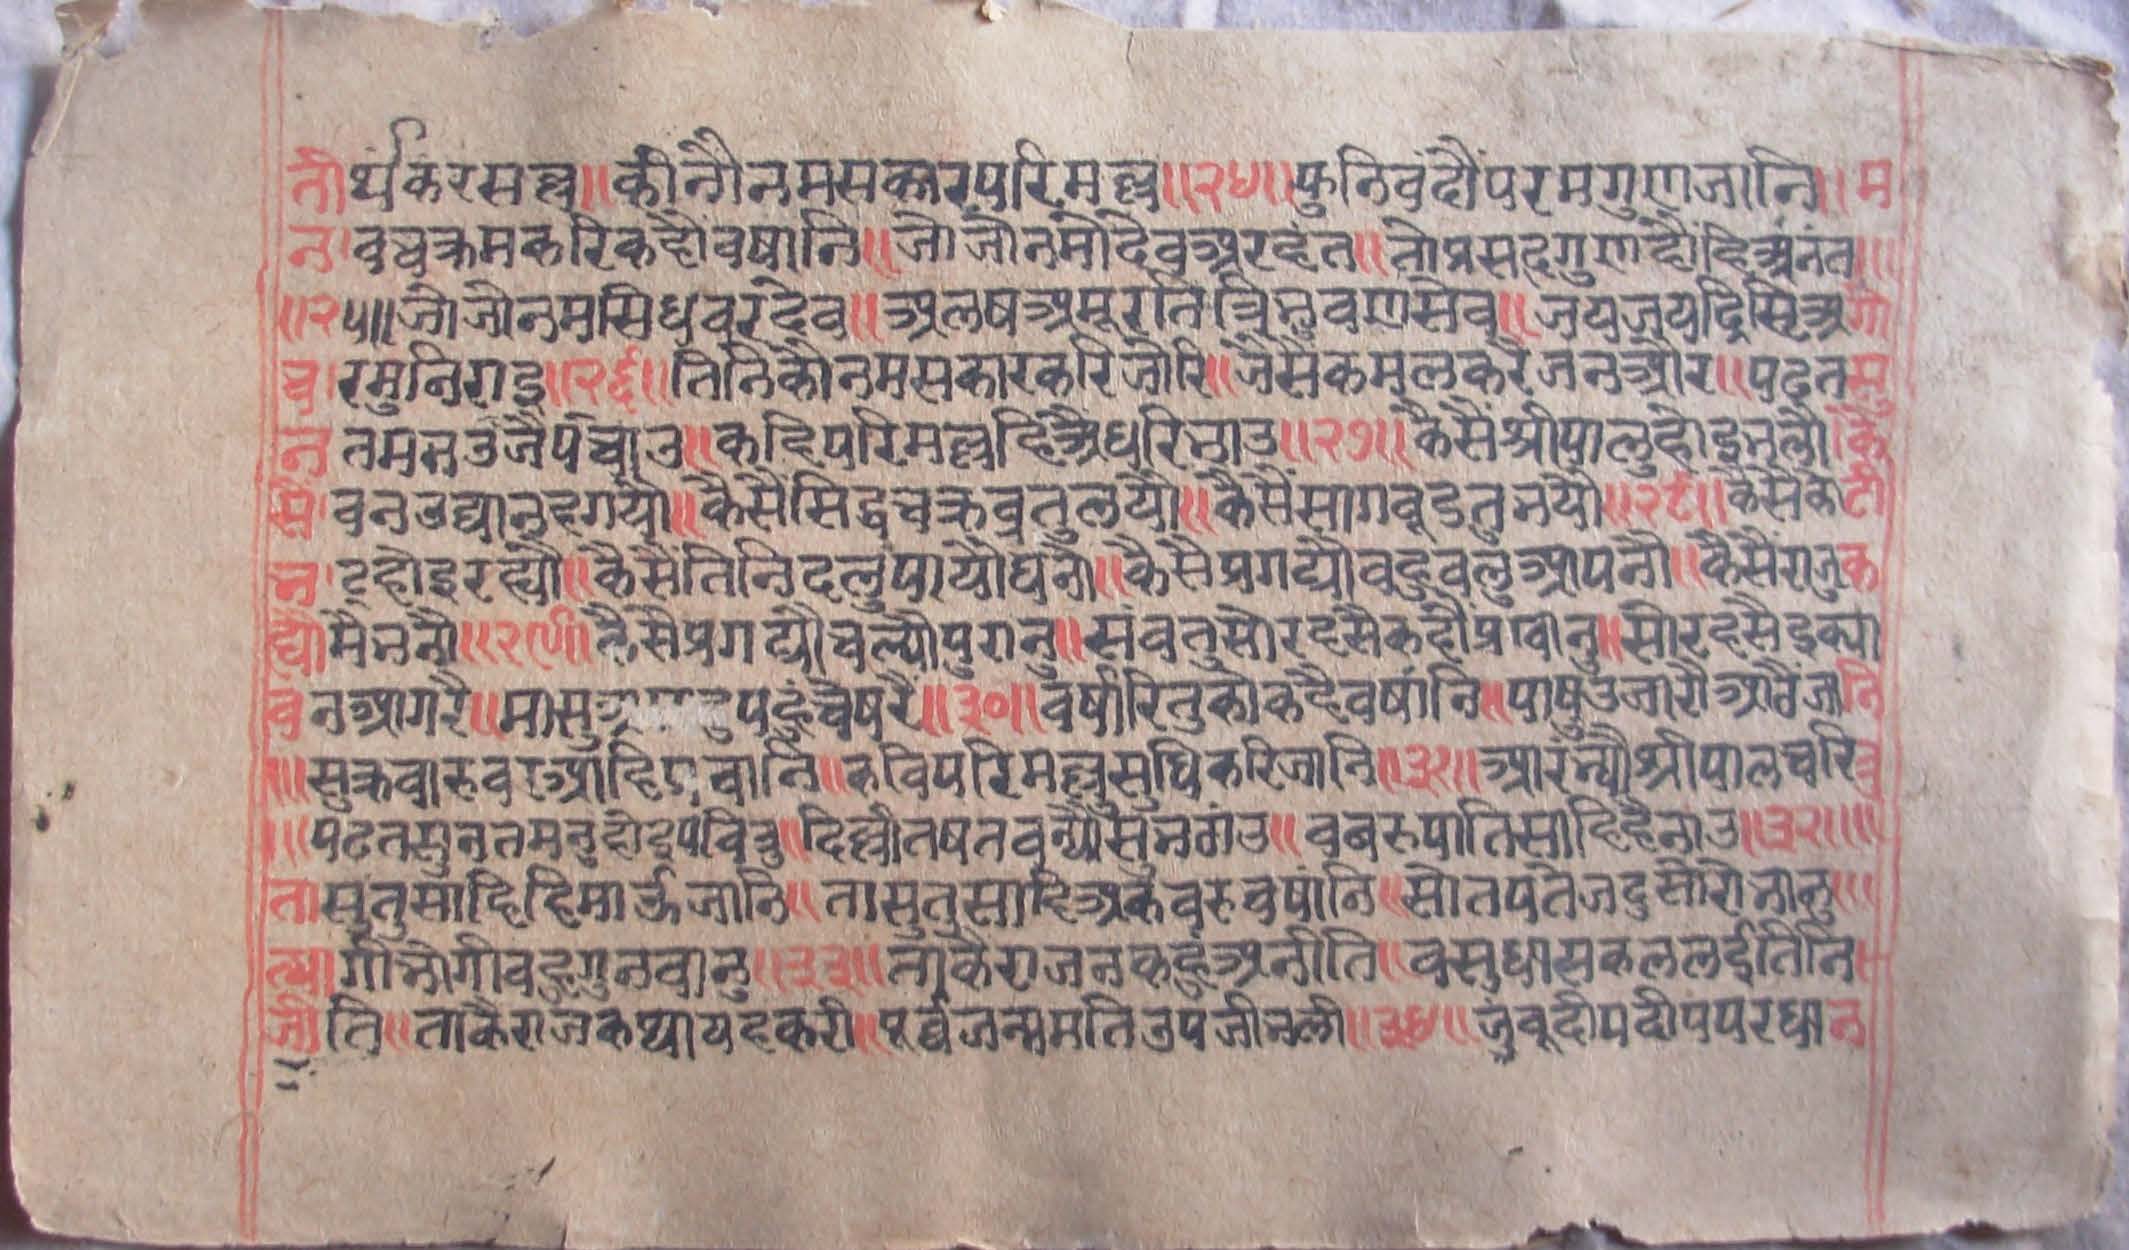 तीर्थंकरसल्ल॥कीनौनमसकारपरिमल्ल॥२४॥फुनिवंदौंपरमगुणजानि॥म
नवचक्रमकरिकहौंवषानि॥जौजौनमोदेवअरहंत॥तोप्रसदगुणदौंहिअनंत॥
॥२५॥जौजौनमसिधवरदेव॥अलषअमूरतित्रिभुवणसेव॥जयजयद्रिस्रिअगो
चरमुनिराइ॥२६॥तिनिकौनमसकारकरिजोरि॥जैसैकमलकरैजनओर॥पढतसु
नतमनउजैपंचाउ॥कहिपरिमल्लहिऐंधरिभाउ॥२७॥कैसैंश्रीपालुहोइभलौ॥कै
सैवनउद्यानहगयौ॥कैसैसिद्धचक्रव्रतुलयौ॥कैसैंसागबूडतुभयौ॥२८॥कैसैंकोटी
भटहोइरह्यौ॥कैसैंतिनिदलुपायौघनौ॥कैसैप्रगट्यौवहुवलुआपनौ॥कैसैंराजुक
ह्यौमैभनौ॥२९॥कैसैप्रगट्यौचल्यौपुरानु॥संवतुसोरहसैकहौंप्रवानु॥सोरहसैइक्या
वनआगरै॥मासु पहुंचेषरै॥३०॥वर्षारितुकोकहैवषांनि॥पाषुउजारौआठैंजानि
॥सुक्रवारुव परवानि॥कविपरिमल्लसुधिकरिजानि॥३१॥आरंभ्यौश्रीपालचरित्रु
॥पढतसुनतमनुहोइपवित्रु॥दिल्लौतषतवन्यौसुभठांउ॥बबरुपातिसाहिहैनाउ॥३२॥॥
तासुतुसाहिहिमाऊंजानि॥तासुतुसाहिअकबरुवषांनि॥सोतपतेजदुसोरोभानु॥
त्यागीभोगीवहुगुनवानु॥३३॥ताकैराजनकहुंअनीति॥वसुधासकललईतिनि
जीति॥ताकैराजकथायहकरी॥पूर्वजन्ममतिउपजीभली॥३४॥जंबूदीपदीपपरधान